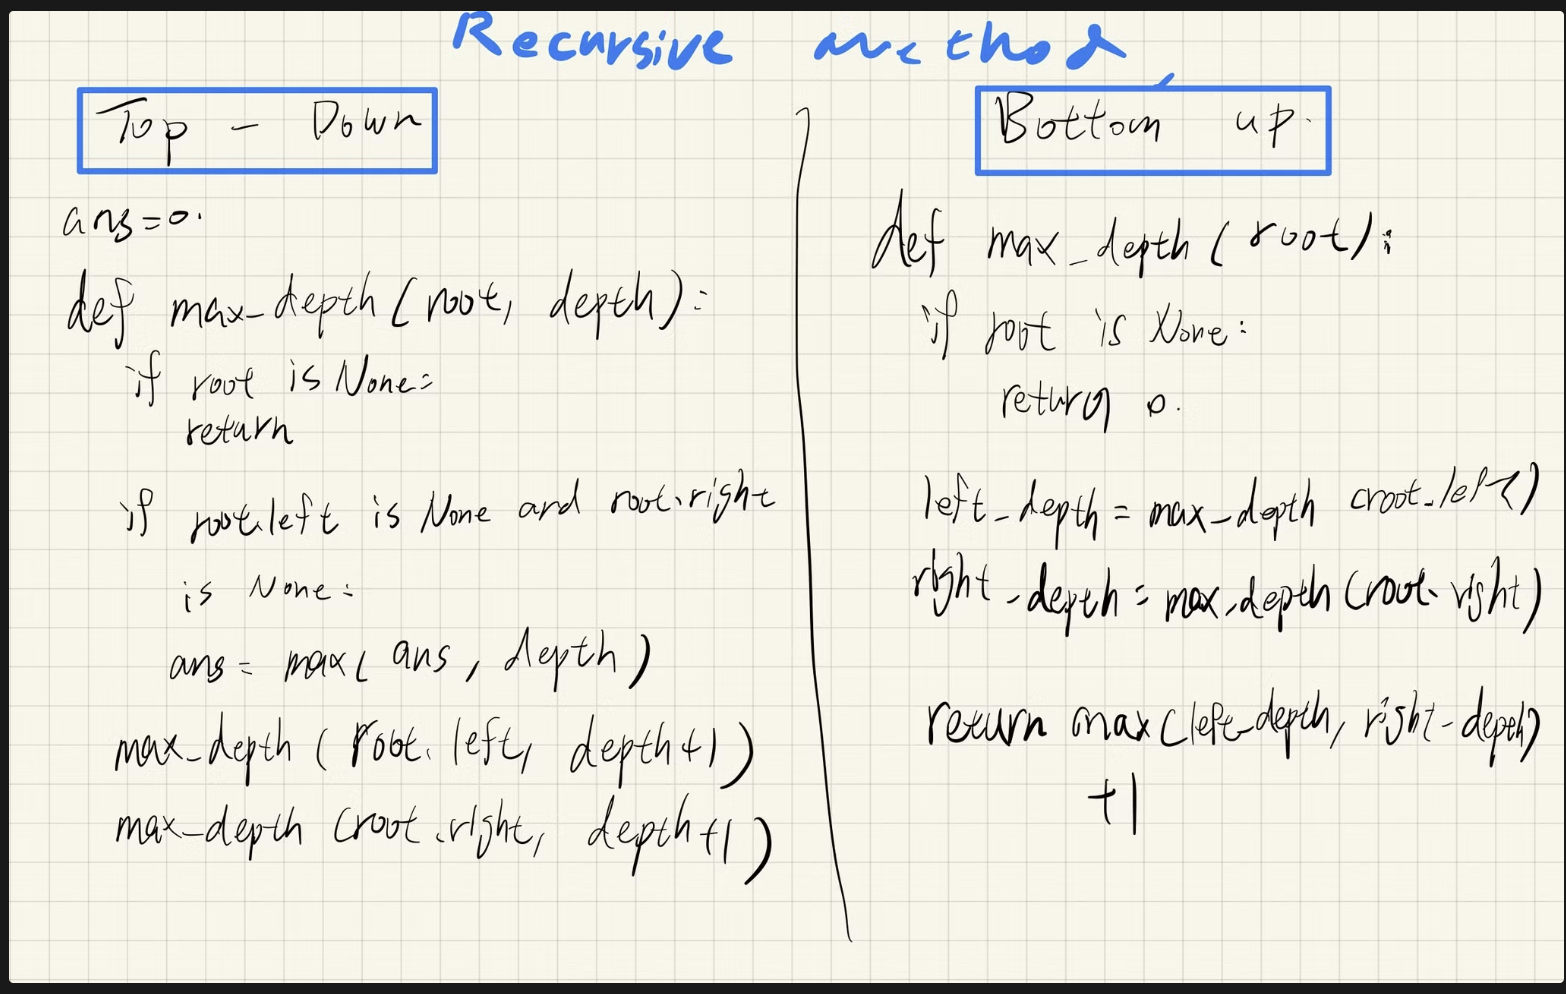 Recursive method
Top - Down
ans=0.
def max-depth(root, depth):
if root is None:
return
if root.left is None and root.right
is None:
ans = max(ans, depth)
max-depth(root.left, depth+1)
max-depth(root.right, depth+1)
Bottom up.
def max_depth(root):
if root is None:
return 0.
left_depth = max_depth(root.left)
right_depth = max_depth(root.right)
return max(left_depth, right-depth)
+1